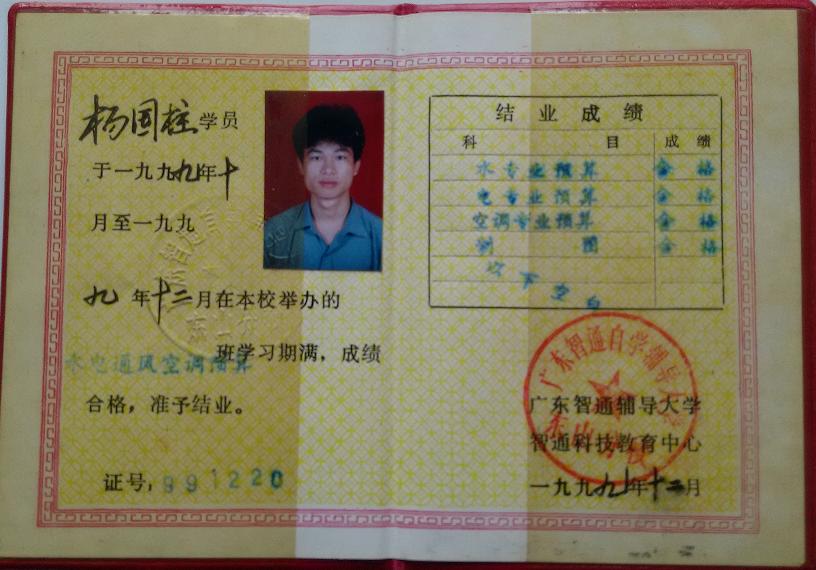 杨国柱学员
于一九九九年十
月至一九九
九年十二月在本校举办的
水电通风空调预算班学习期满，成绩
合格，准予结业。
证号：991220
结业成绩
科目 成绩
水专业预算 合格
电专业预算 合格
空调专业预算 合格
制图 合格
以下空白
广东智通自学辅导大学
东山分校
广东智通辅导大学
智通科技教育中心
一九九九年十二月